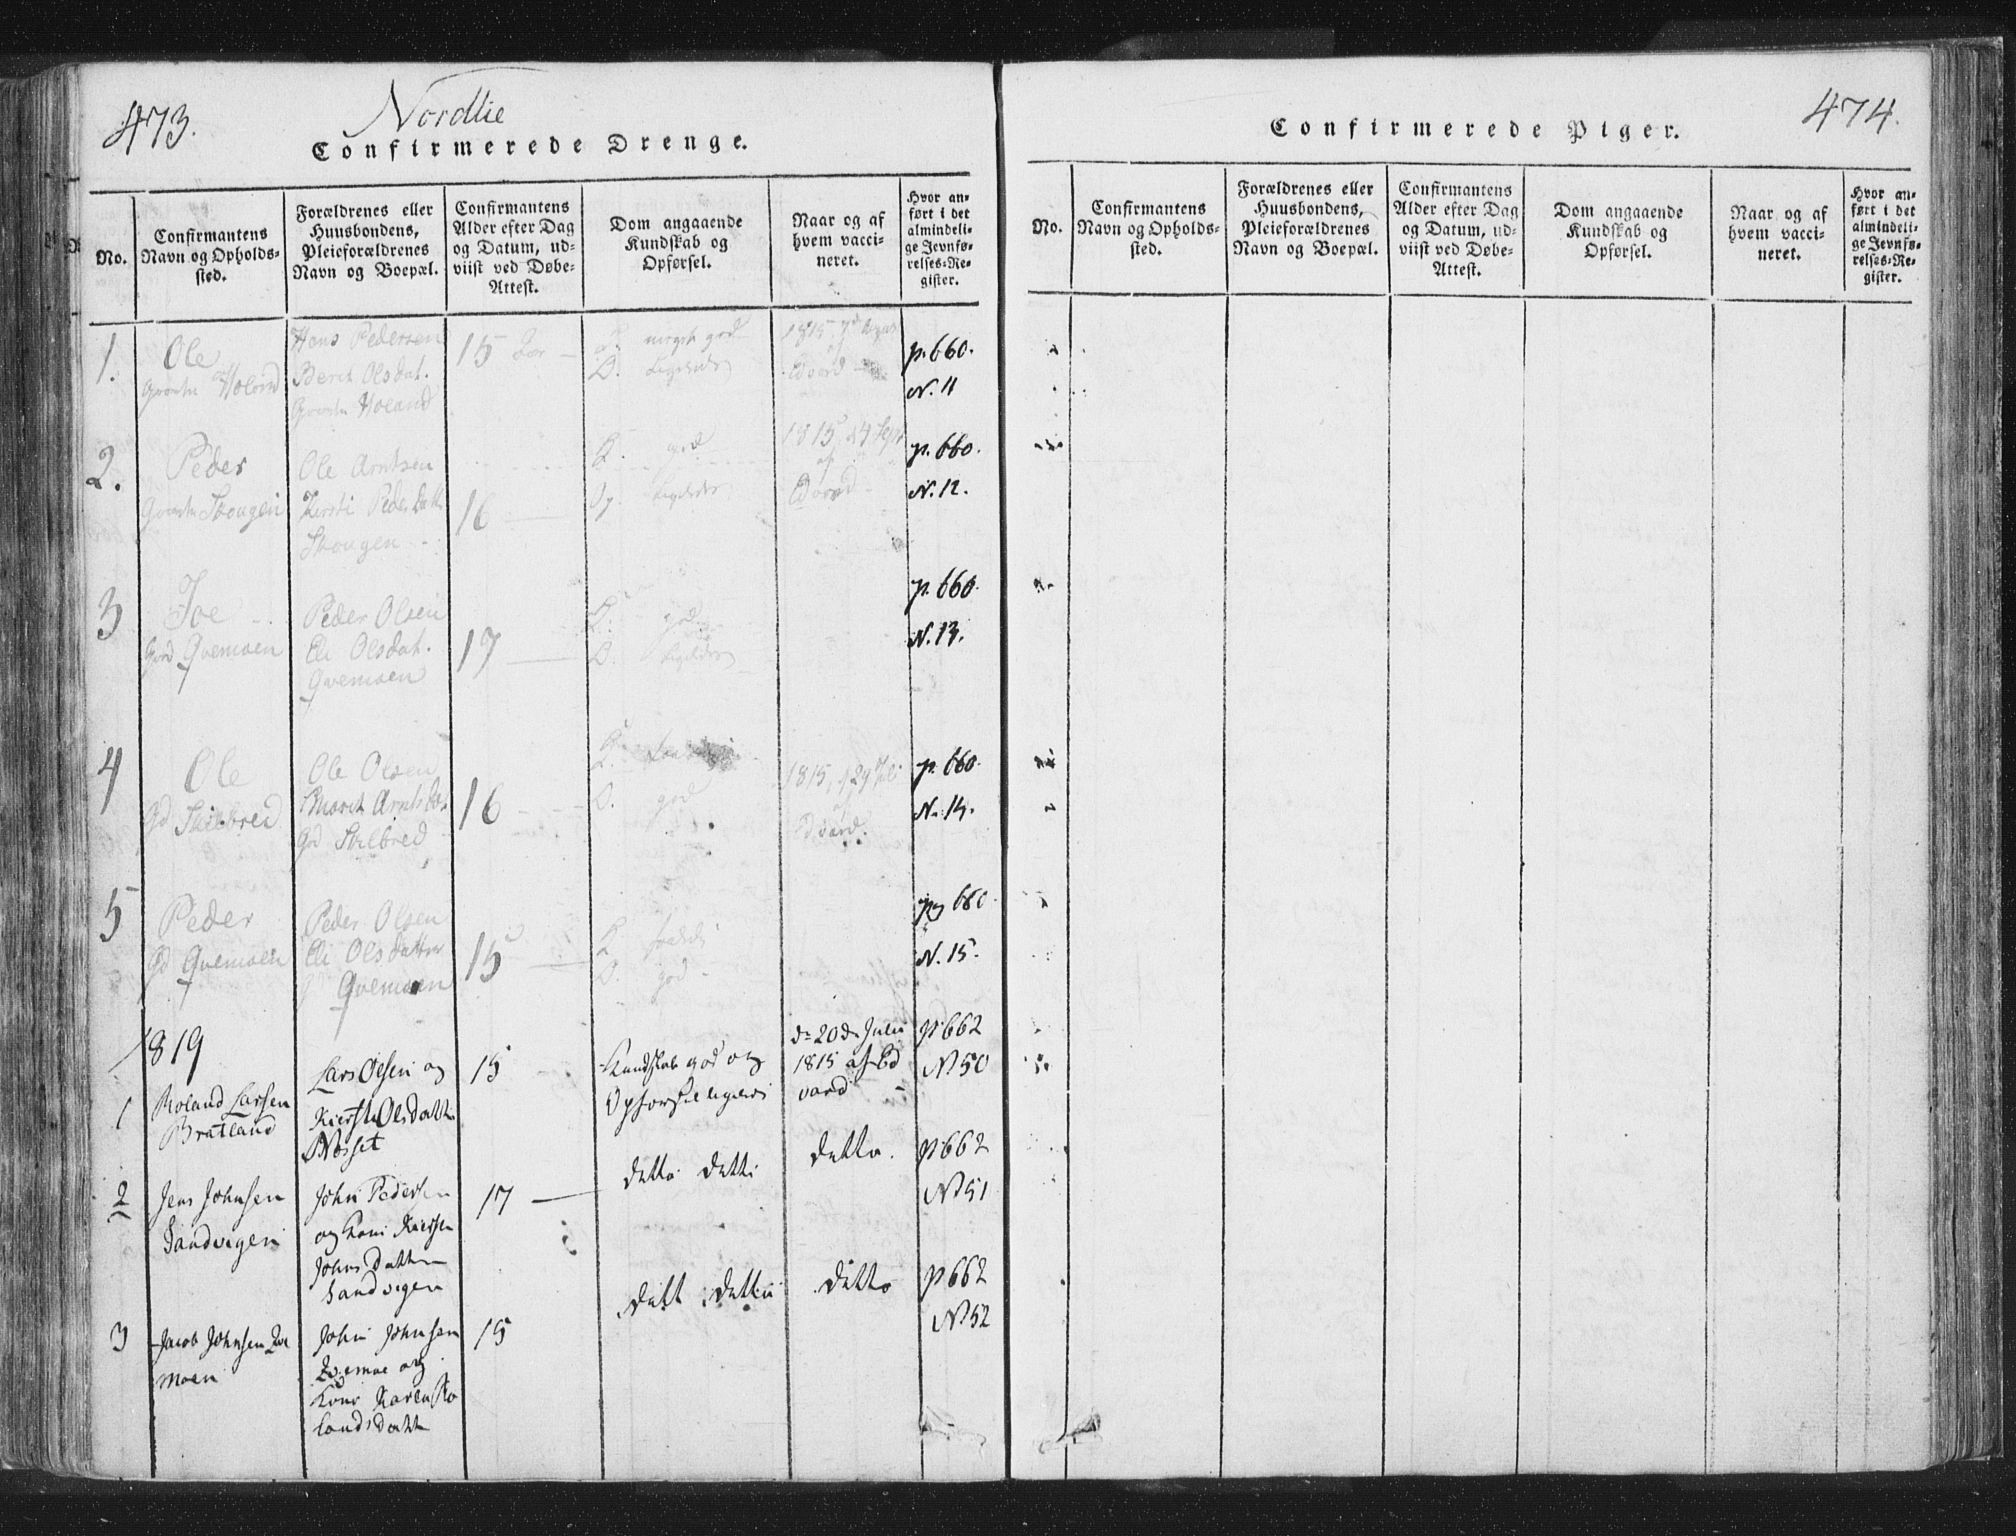 473.
Nordlie
Confirmerede Drenge.
No.
Confirmantens
Navn og Opholds-
sted.
Forældrenes eller
Huusbondens,
Pleieforældrenes
Navn og Boepæl.
Confirmantens
Alder efter Dag
og Datum, ud-
viist ved Døbe-
Attest.
Dom angaaende
Kundskab og
Opførsel.
Naar og af
hvem vacci-
neret.
Hvor an-
ført i det
almindeli-
ge Jevnfø-
relses-Re-
gister.
1.
Ole
Hans Pedersen
Berit Olsdat.
15 Aar
K. meget god
O. Ligeledes
1815
Edvard
p. 660.
N. 11
2.
Peder
Skougen
Ole Arntsen
Kersti Peders Datt
Skougen
16
K. god
Op. Ligeledes
1815, 24 Sept
af
Edvard
p. 660.
N. 12.
3
Joe
Qvemoen
Peder Olsen
Eli Olsdat.
Qvemoen
17
K. god
O. Ligeledes
p. 660.
N. 13.
4
Ole
Gd Skilbred
Ole Olsen
Marit Arnts
Skilbred
16
K.
O. god
1815, 29 Juli
af
Edvard.
p. 660.
N. 14.
5
Peder
Gd Qvemoen
Peder Olsen
Eli Olsdatter
Qvemoen
15
K.
O. god
pag 660.
N. 15.
1819
1
Roland Larsen
Bratland
Lars Olsen og
Kiersti Olsdatter
Næsset
15
Kundskab god og
Opførsel ligeles
d. 20de Julii
1815 af Ed
vard
p 662
N 50
2
Jens Johnsen
Sandvigen
John Pedersen
og Koni Kiersten
Johnsdatter
Sandvigen
17
ditto ditto
ditto.
p 662
N 51
3
Jacob Johnsen Qve
moen
John Johnsen
Qvemoe og
Kone Karen Ro
landsdatter
15
ditto ditto
ditto
p 662
N 52
474.
Confirmerede Piger.
No.
Confirmantens
Navn og Opholds-
sted.
Forældrenes eller
Huusbondens,
Pleieforældrenes
Navn og Boepæl.
Confirmantens
Alder efter Dag
og Datum, ud-
viist ved Døbe-
Attest.
Dom angaaende
Kundskab og
Opførsel.
Naar og af
hvem vacci-
neret.
Hvor an-
ført i det
almindeli-
ge Jevnfø-
relses-Re-
gister.